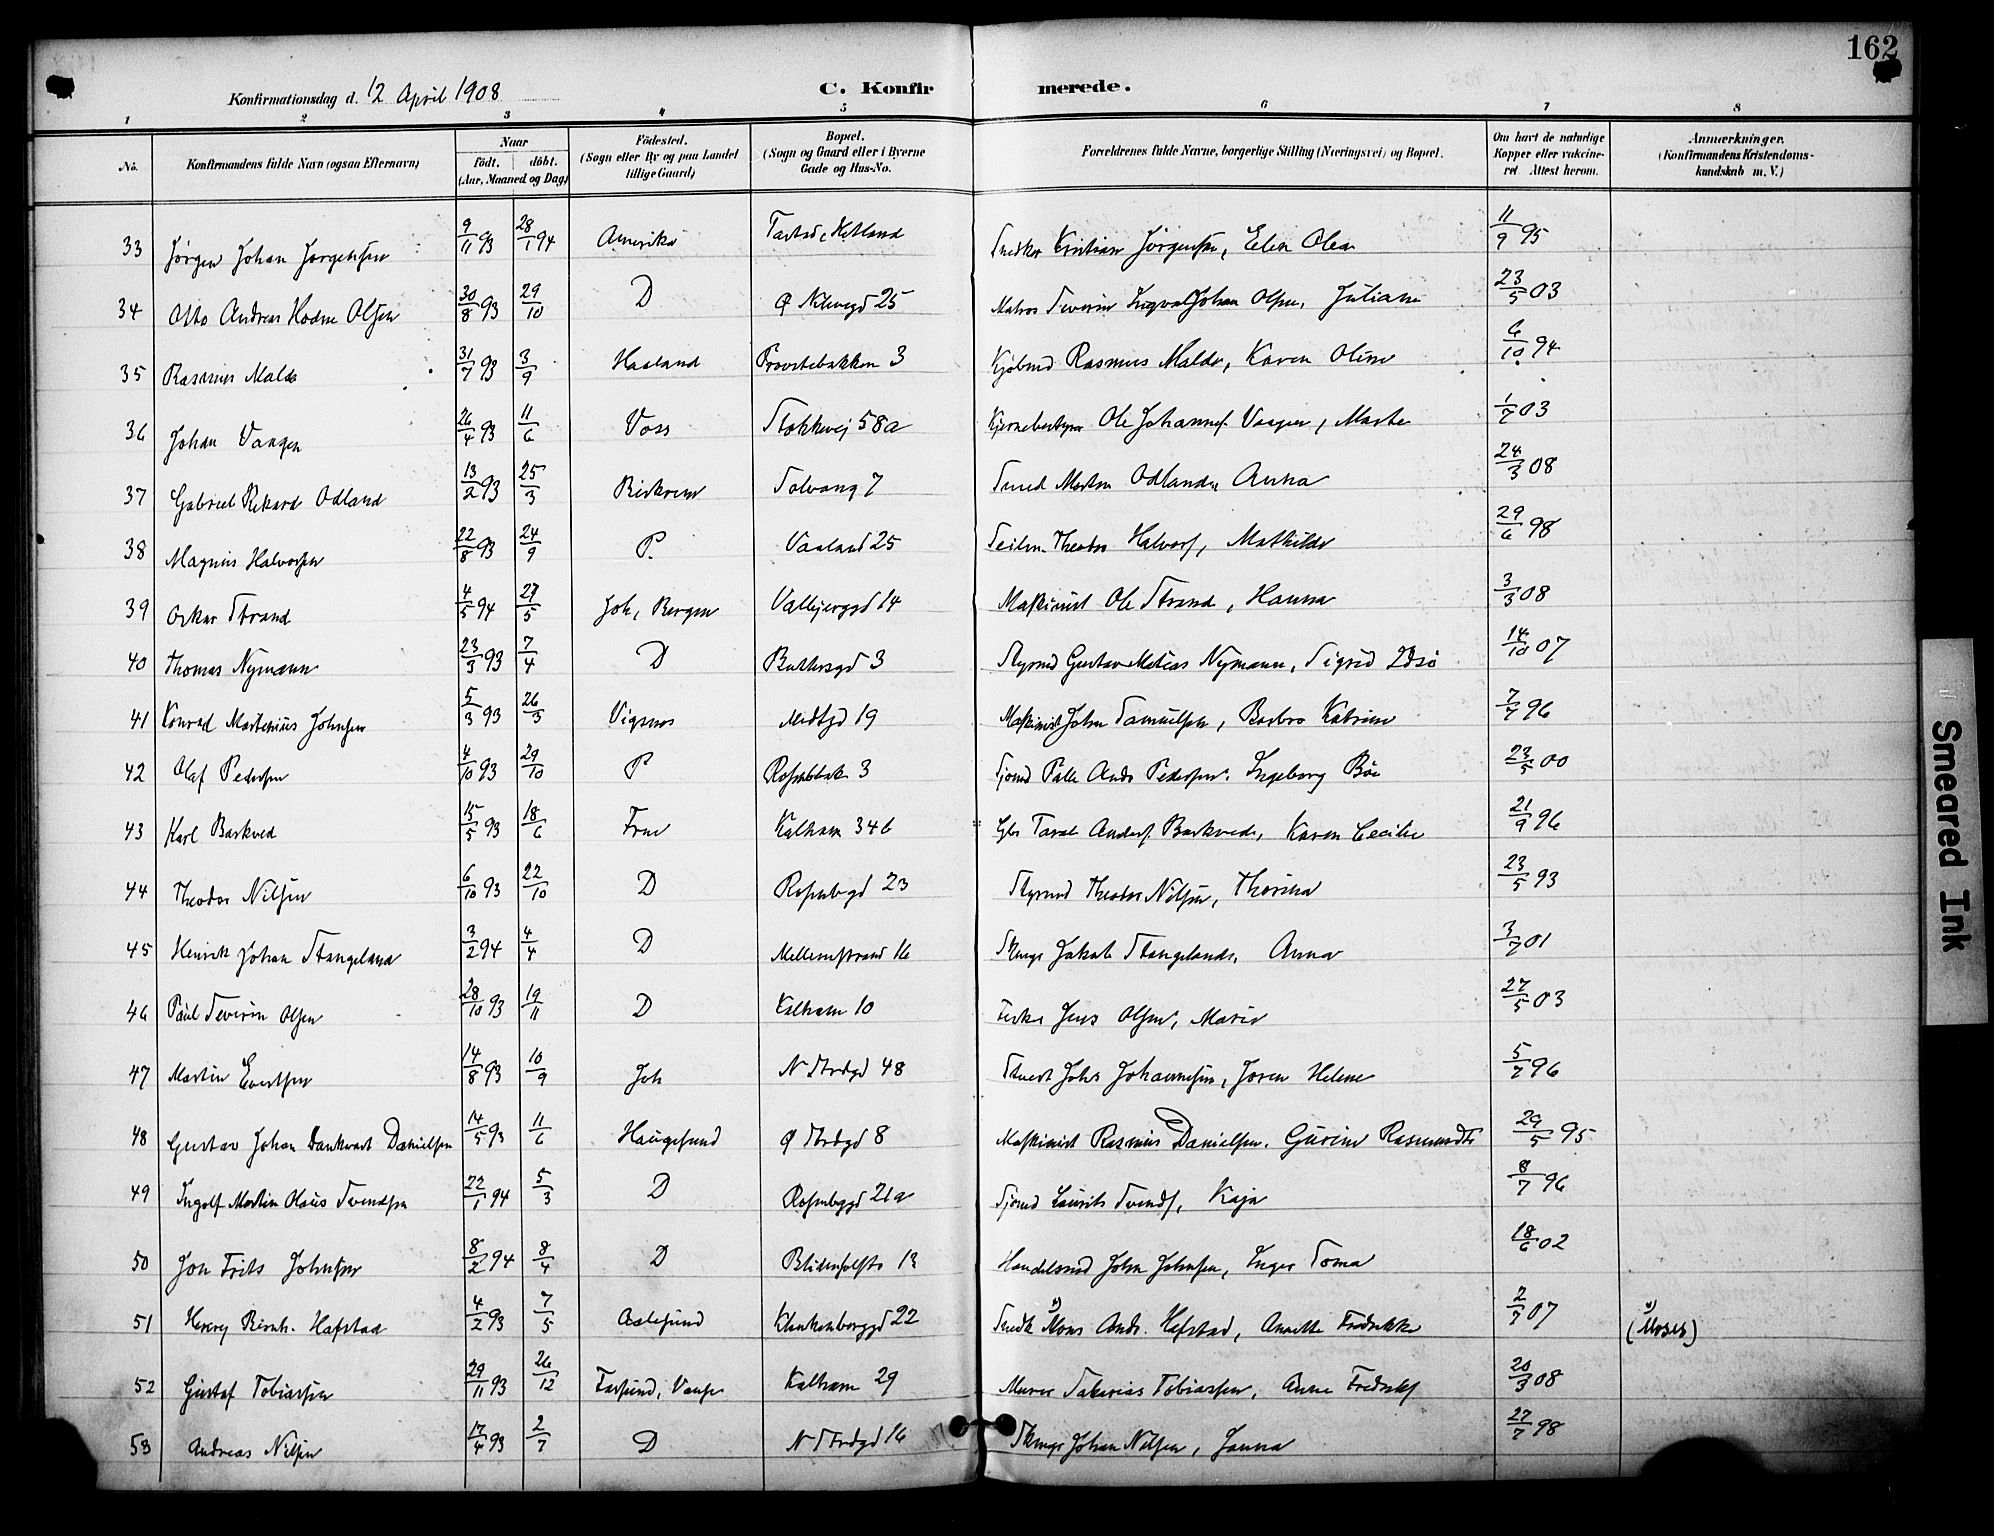 162
Konfirmationsdag d. 12 April 1908
C. Konfirmerede.
1 2 3 4 5 6 7 8
No. Konfirmandens fulde Navn (ogsaa Efternavn) Naar födt. döbt. (Aar, Maaned og Dag) Födested. (Sogn eller By og paa Landet tillige Gaard) Bopæl. (Sogn og Gaard eller i Byerne Gade og Hus-No. Forældrenes fulde Navne, borgerlige Stilling (Næringsvei) og Bopæl. Om havt de naturlige Kopper eller vaccineret Attest herom. Anmærkninger. (Konfirmandens Kristendomskundskab m. V.)
33 Jörgen Johan Jørgensen 9/11 93 28/1 94 Amerika Hetland Snedker Kristian Jörgensen, Elen Olea 11/9 95
34 Otto Andreas Hodne Olsen 30/8 93 29/10 D Ø 25 Matros Severin Ingval Johan Olsen, Juliane 23/5 03
35 Rasmus Malde 31/7 93 3/9 Haaland Provstebakken 3 Kjøbmd Rasmus Malde, Karen Oline 6/10 94
36 Johan Vaagen 26/4 93 11/6 Voss Stokkavej 58a Ole Johannes Vaagen, Marte 1/7 03
37 Gabriel Rikard Odland 13/2 93 25/3 Birkrem Solvang 7 Smed Morten Odland, Anna 24/3 08
38 Magnus Halvorsen 22/8 93 24/9 P. Vaaland 25 Seilm. Theodor Halvors, Mathilde 29/6 98
39 Oskar Strand 4/5 94 27/5 Joh, Bergen Valbjerggd 14 Maskinist Ole Strand, Hanna 3/3 08
40 Thomas Nymann 23/3 93 7/4 D Buthersgd 3 Styrmd Gustav Matias Nymann, Sigrid Idsö 14/10 07
41 Konrad Martenius Johnsen 5/3 93 26/3 Vigsnes Midtgd 19 Maskinist John Samuelsen, Barbro Katrine 7/7 96
42 Olaf Pedersen 4/10 93 29/10 P 3 Sjömd Palle Ands Pedersen, Ingeborg Böe 23/5 00
43 Karl Barkved 15/5 93 18/6 Frue Kalham 346 Taral Anders. Barkved, Karen Cecilie 21/9 96
44 Theodor Nilsen 6/10 93 22/10 D Rosenbgd 23 Styrmd Theodor Nilsen, Thorina 23/5 93
45 Henrik Johan Stangeland 3/2 94 4/4 D Mellemstrand 16 Jakob Stangeland, Anna 3/7 01
46 Paul Severin Olsen 28/10 93 19/11 D Kalham 10 Fisker Jens Olsen, Marie 27/5 03
47 Martin Evertsen 14/8 93 10/9 Joh N Strdgd 48 Stuert Johs Johannesen, Joren Helene 5/7 96
48 Gustav Johan Dankvart Danielsen 14/5 93 11/6 Haugesund Ø Strdgd 8 Maskinist Rasmus Danielsen, Gurine Rasmusdtr 29/5 95
49 Ingolf Martin Olaus Svendsen 22/1 94 5/3 D Rosenbggd 21a Sjömd Laurits Svends, Kaja 8/7 96
50 Jon Frits Johnsen 8/2 94 8/4 D 13 Handelsmd John Johnsen, Inger Toma 18/6 02
51 Bernh. Hafstad 4/2 93 7/5 Aalesund Klinkenberggd 22 Snedk Mons Ands. Hafstad, Annette Fredrikke 2/7 07 (Moses)
52 Gustaf Tobiassen 29/11 93 26/12 Farsund, Vanse Kalham 29 Murer Sakarias Tobiassen, Anne 20/3 08
53 Andreas Nilsen 17/4 93 2/7 D N Strdgd 16 Johan Nilsen, Janna 27/7 98
Smeared Ink